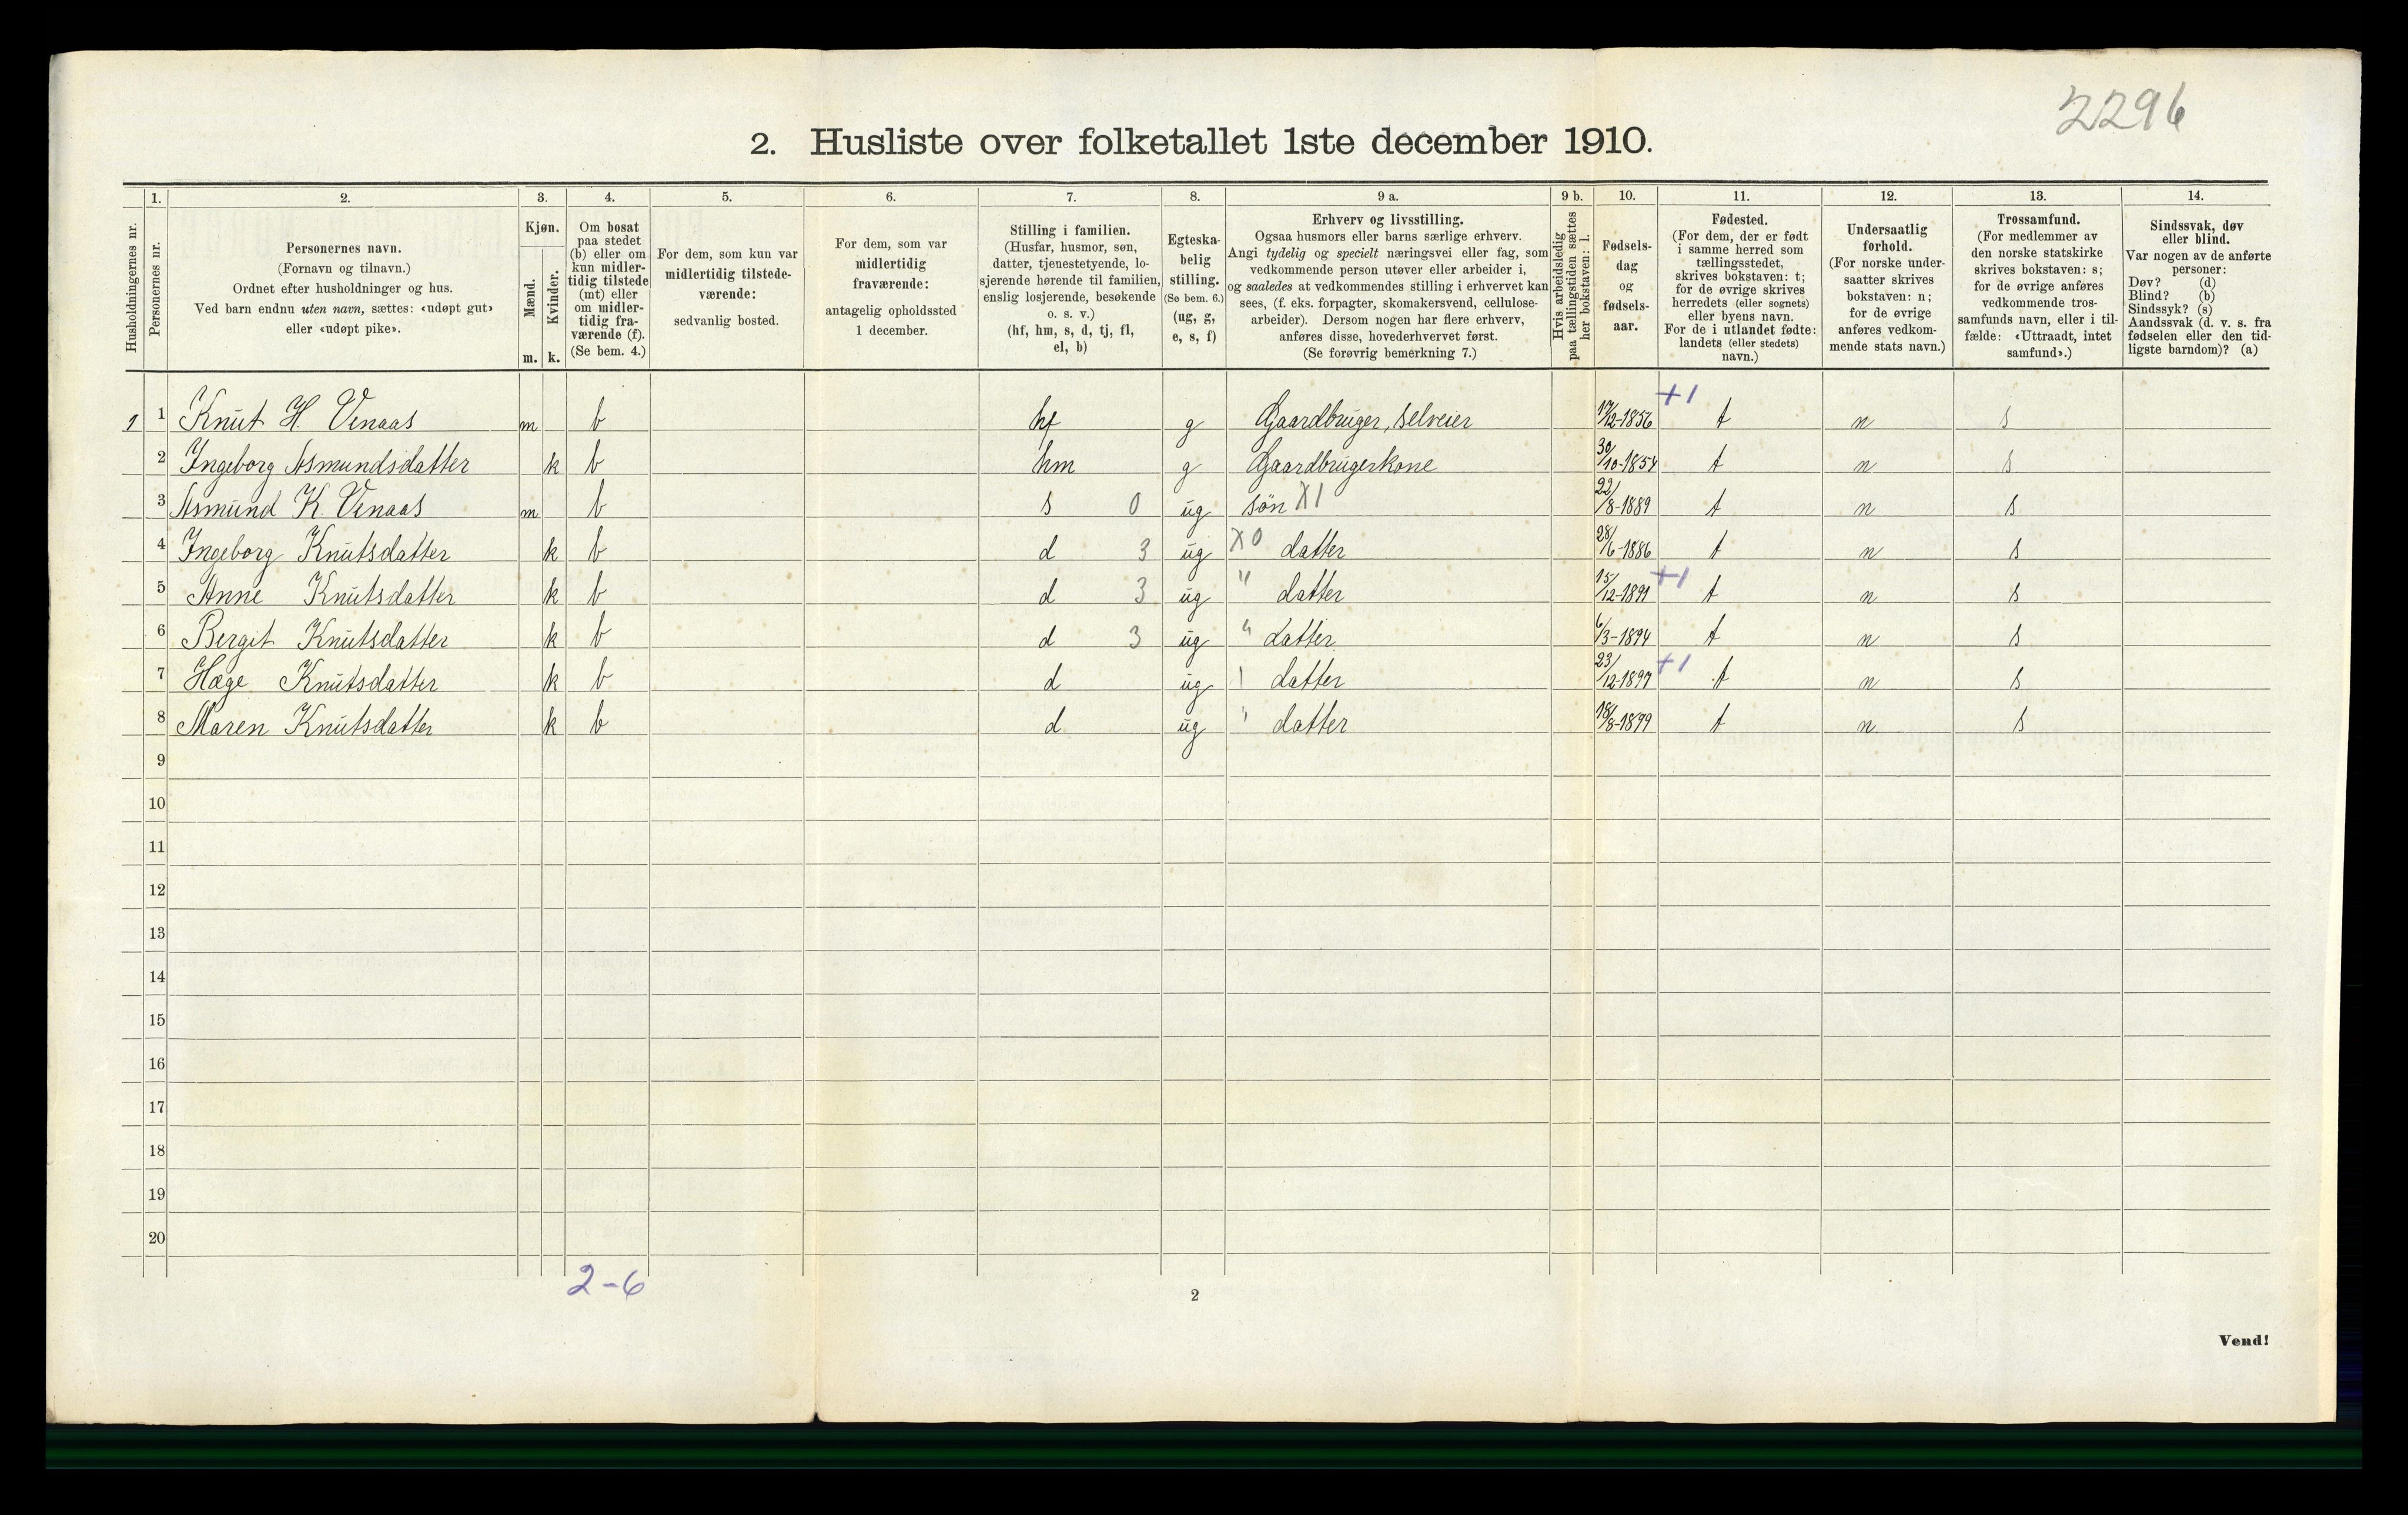 2296
2. Husliste over folketallet 1ste december 1910.
Husholdningernes nr.
1.
Personernes nr.
2.
Personernes navn.
(Fornavn og tilnavn.)
Ordnet efter husholdninger og hus.
Ved barn endnu uten navn, sættes: «udøpt gut»
eller «udøpt pike».
3.
Kjøn.
Mænd.
Kvinder.
m. k.
4.
Om bosat
paa stedet
(b) eller om
kun midler-
tidig tilstede
(mt) eller
om midler-
tidig fra-
værende (f).
(Se bem. 4.)
5.
For dem, som kun var
midlertidig tilstede-
værende:
sedvanlig bosted.
6.
For dem, som var
midlertidig
fraværende:
antagelig opholdssted
1 december.
7.
Stilling i familien.
(Husfar, husmor, søn,
datter, tjenestetyende, lo-
sjerende hørende til familien,
enslig losjerende, besøkende
o. s. v.)
(hf, hm, s, d, tj, fl,
el, b)
8.
Egteska-
belig
stilling.
(Se bem. 6.)
(ug, g,
e, s, f)
9 a.
Erhverv og livsstilling.
Ogsaa husmors eller barns særlige erhverv.
Angi tydelig og specielt næringsvei eller fag, som
vedkommende person utøver eller arbeider i,
og saaledes at vedkommendes stilling i erhvervet kan
sees, (f. eks. forpagter, skomakersvend, cellulose-
arbeider). Dersom nogen har flere erhverv,
anføres disse, hovederhvervet først.
(Se forøvrig bemerkning 7.)
9 b.
Hvis arbeidsledig
paa tællingstiden sættes
her bokstaven: l.
10.
Fødsels-
dag
og
fødsels-
aar.
11.
Fødested.
(For dem, der er født
i samme herred som
tællingsstedet,
skrives bokstaven: t;
for de øvrige skrives
herredets (eller sognets)
eller byens navn.
For de i utlandet fødte:
landets (eller stedets)
navn.)
12.
Undersaatlig
forhold.
(For norske under-
saatter skrives
bokstaven: n;
for de øvrige
anføres vedkom-
mende stats navn.)
13.
Trossamfund.
(For medlemmer av
den norske statskirke
skrives bokstaven: s;
for de øvrige anføres
vedkommende tros-
samfunds navn, eller i til-
fælde: «Uttraadt, intet
samfund».)
14.
Sindssvak, døv
eller blind.
Var nogen av de anførte
personer:
Døv? (d)
Blind? (b)
Sindssyk? (s)
Aandssvak (d. v. s. fra
fødselen eller den tid-
ligste barndom)? (a)
1 1 Knut H. Venaas m b hf g Gaardbruger, selveier 17/12-1856 +1 t n s
2 Ingeborg Asmundsdatter k b hm g Gaardbrugerkone 30/10-1854 t n s
3 Asmund K. Venaas m b s 0 ug søn X1 22/8-1889 t n s
4 Ingeborg Knutsdatter k b d 3 ug X0 datter 28/6-1886 t n s
5 Anne Knutsdatter k b d 3 ug " datter 15/12-1891 +1 t n s
6 Berget Knutsdatter k b d 3 ug " datter 6/3-1894 t n s
7 Hæge Knutsdatter k b d ug datter 23/12-1897 +1 t n s
8 Maren Knutsdatter k b d ug " datter 18/8-1899 t n s
9
10
11
12
13
14
15
16
17
18
19
20
2-6
2
Vend!